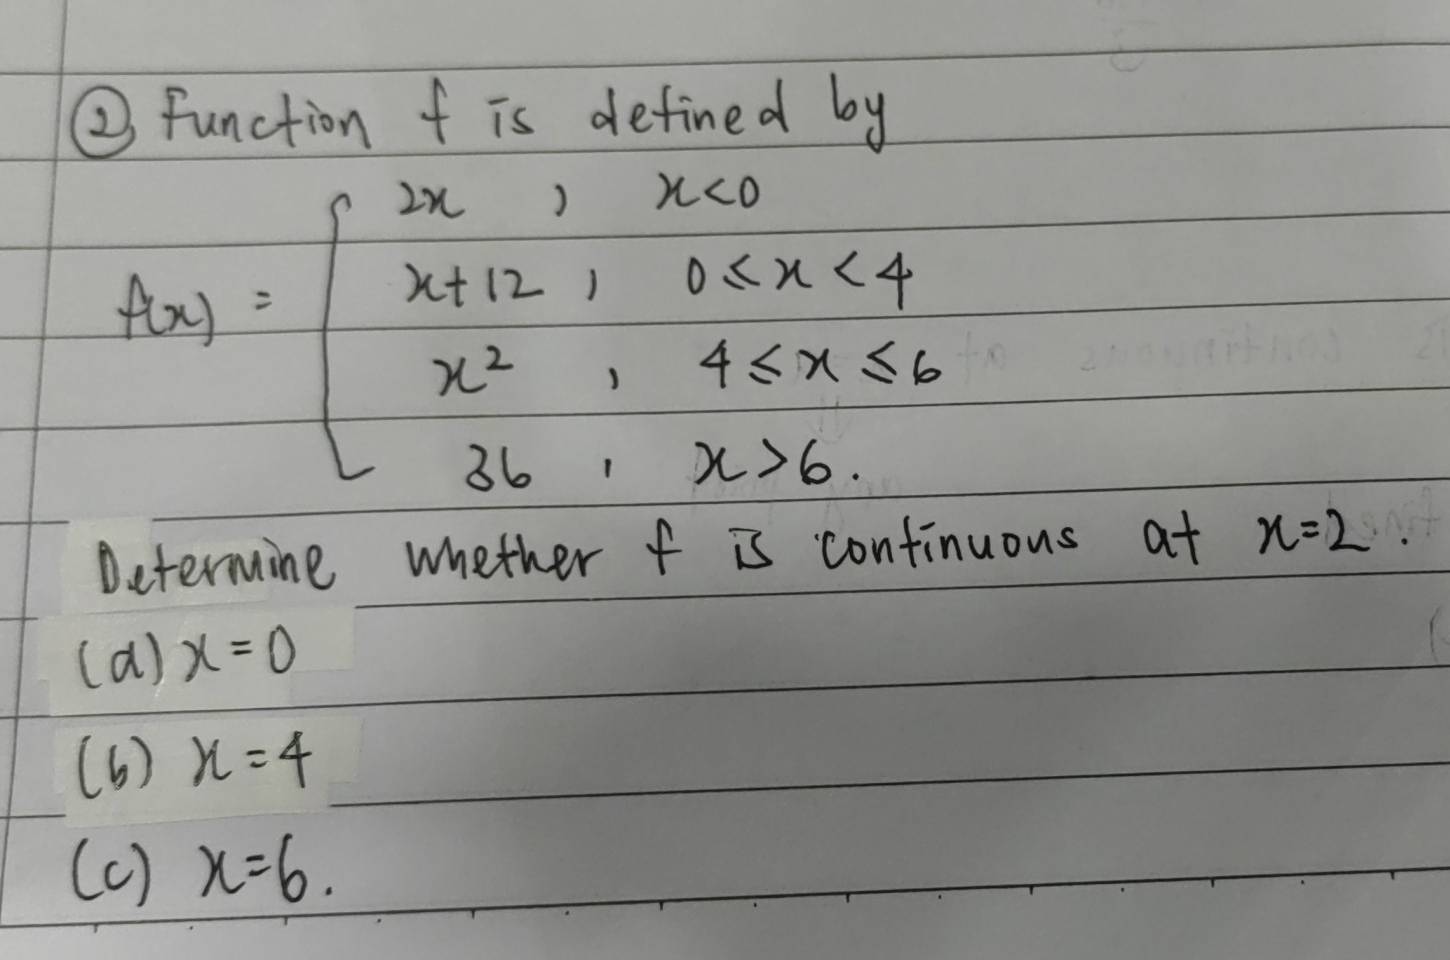 ② Function f is defined by
2x , x<0
x+12 , 0≤x<4
f(x) =
x² , 4≤x≤6
36 , x>6.
Determine whether f is continuous at x=2.
(a) x=0
(b) x=4
(c) x=6.